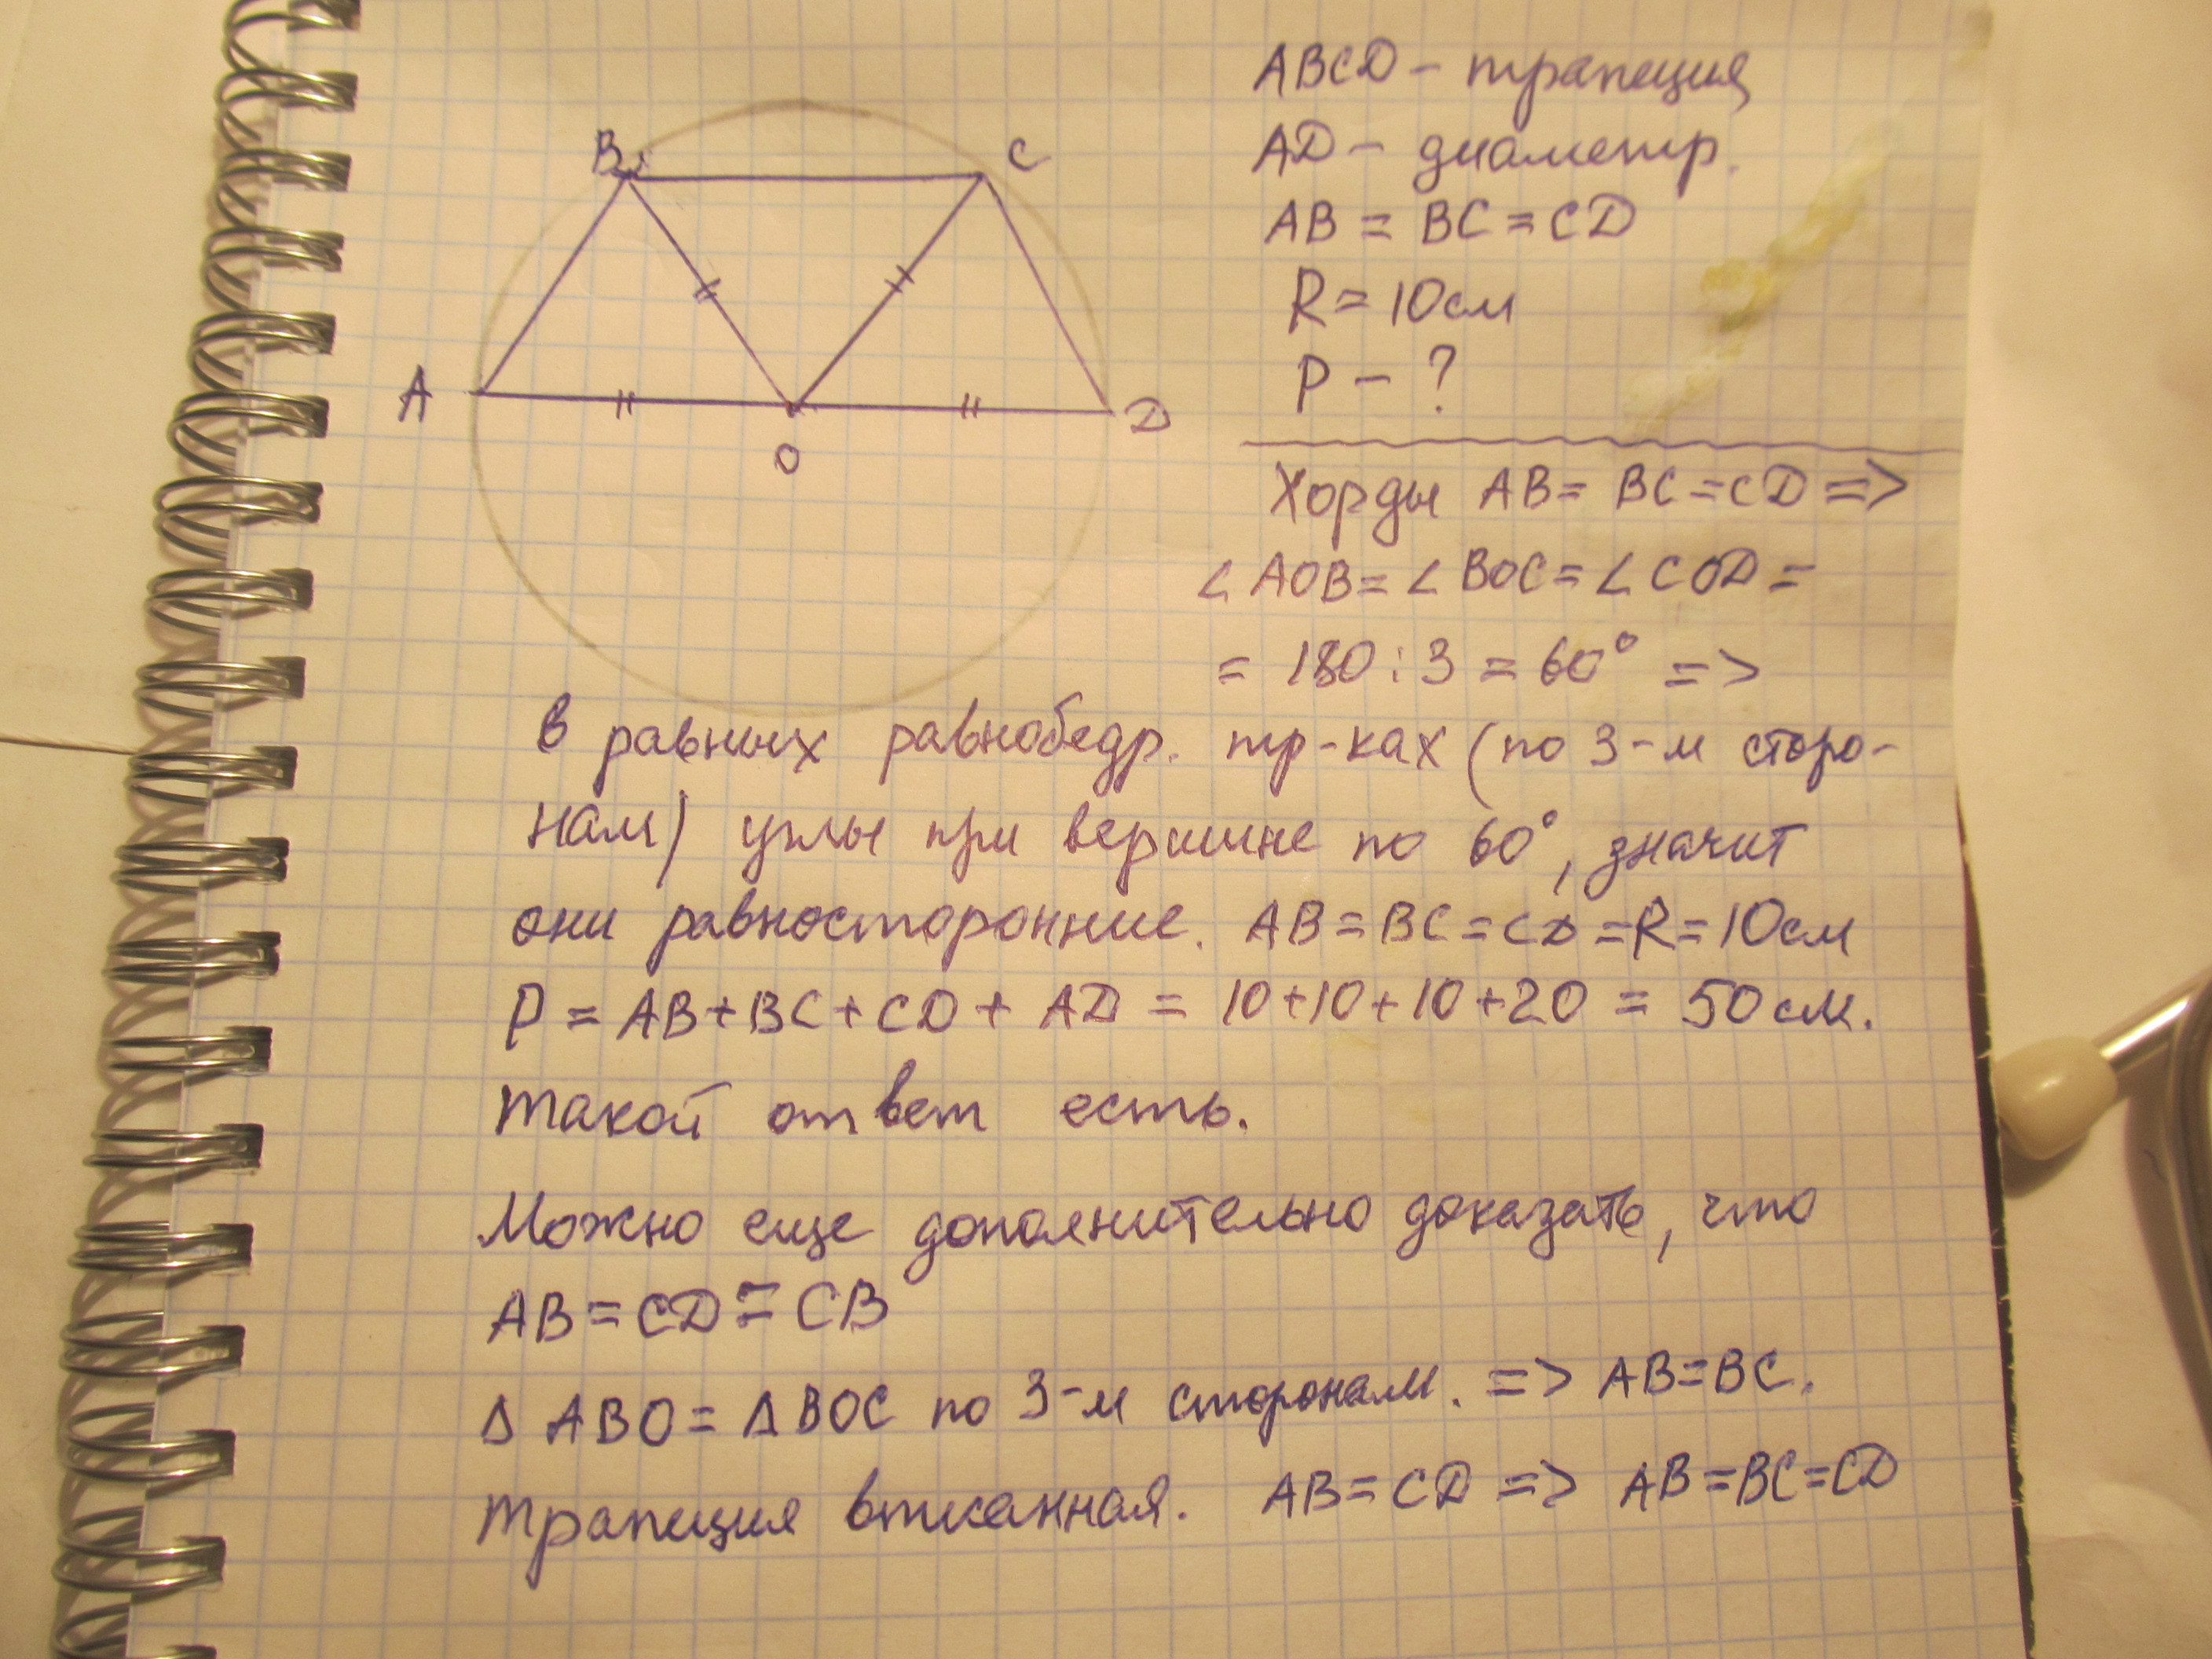 ABCD - трапеция
AD - диаметр.
AB = BC = CD
R = 10 см
P - ?
B
C
A
O
D
Хорды AB = BC = CD =>
∠ AOB = ∠ BOC = ∠ COD =
= 180 : 3 = 60° =>
в равных равнобедр. тр-ках (по 3-м сторо-
нам) углы при вершине по 60°, значит
они равносторонние. AB = BC = CD = R = 10 см
P = AB + BC + CD + AD = 10 + 10 + 10 + 20 = 50 см.
такой ответ есть.
Можно еще дополнительно доказать, что
AB = CD = CB
Δ ABO = Δ BOC по 3-м сторонам. => AB = BC.
трапеция вписанная. AB = CD => AB = BC = CD